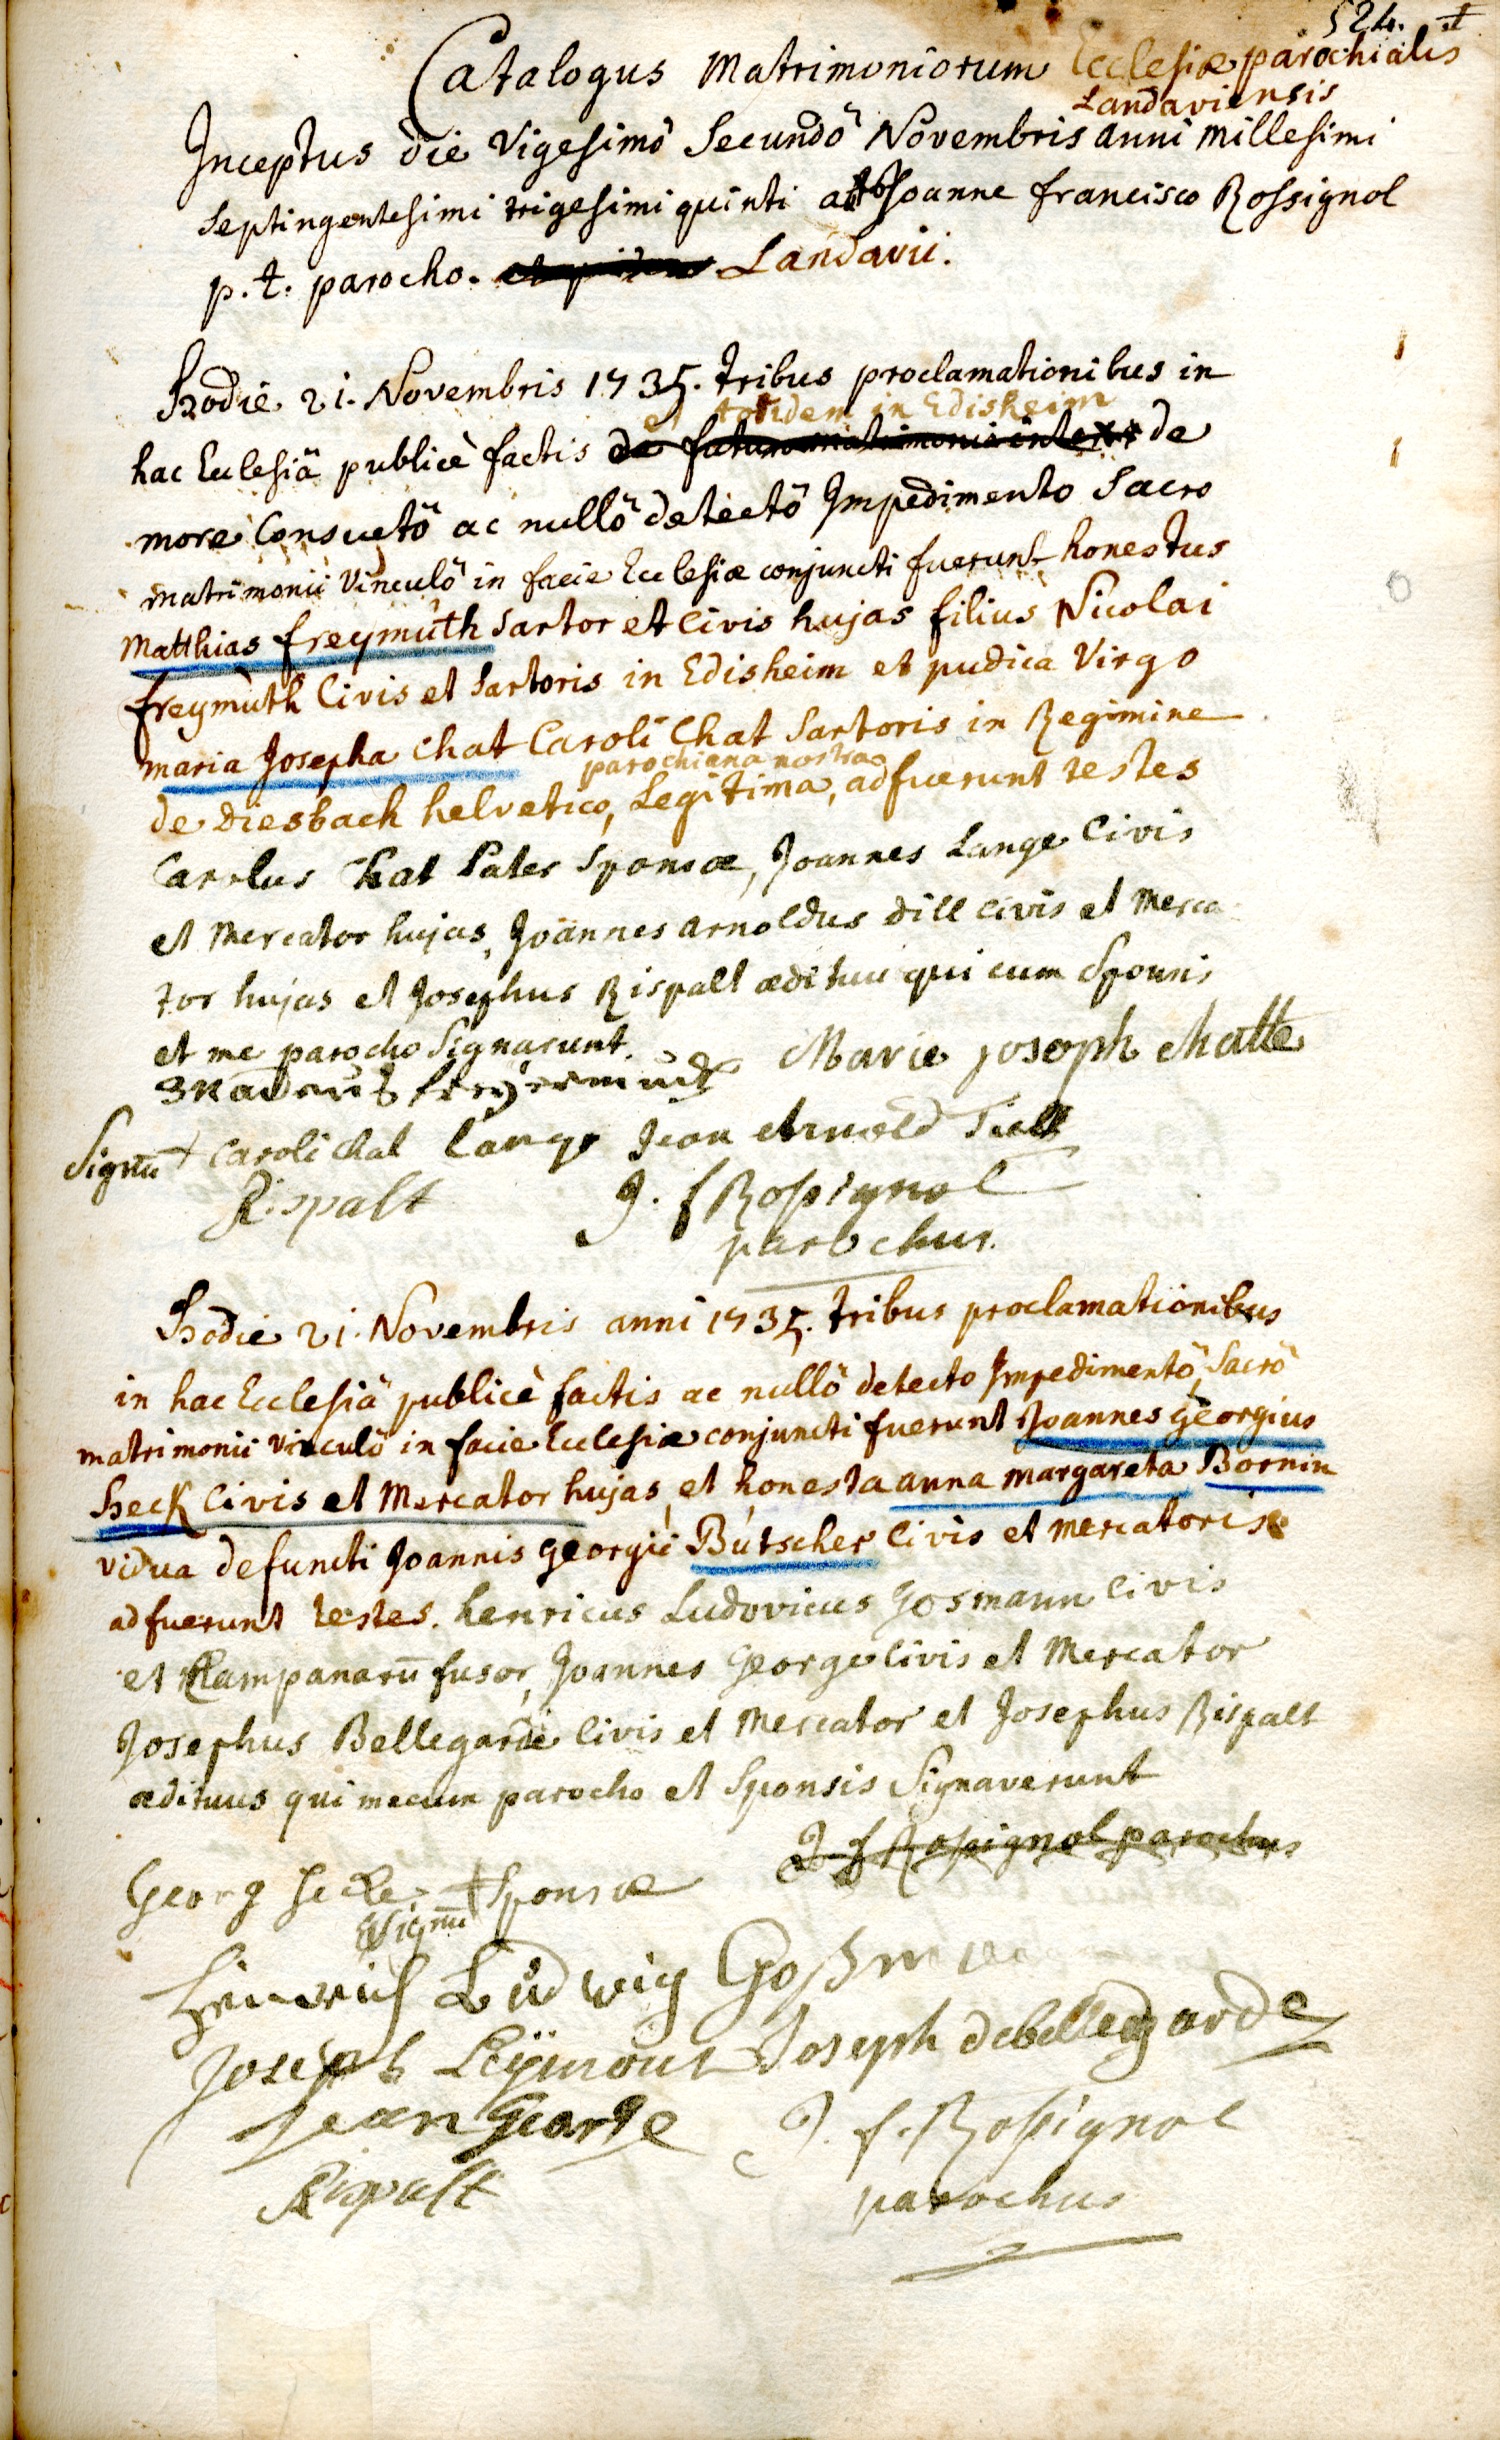 524. +
Catalogus Matrimoniorum Ecclesiæ parochialis
Landaviensis
Inceptus die Vigesimô Secundô Novembris anni millesimi
Septingentesimi trigesimi quinti a Joanne francisco Rossignol
p.t. parocho. Landavii.
Hodie 21. Novembris 1735. tribus proclamationibus in
et totidem in Edisheim
hac Ecclesiâ publicè factis de futuro matrimonio inter de
more Consuetô ac nullô detectô Impedimento Sacro
matrimonii Vinculô in facie Ecclesiæ conjuncti fuerunt honestus
Matthias freymùth Sartor et Civis hujas filius Nicolai
freymùth Civis et Sartoris in Edisheim et pudica Virgo
maria Josepha Chat Caroli Chat Sartoris in Regimine
parochiana nostra
de diesbach helvetico, Legitima, adfuerunt testes
Carolus Chat Pater Sponsæ, Joannes Lange Civis
et Mercator hujas, Joannes arnoldus dill civis et Merca
tor hujas et Josephus Rispalt ædituu qui cum Sponsis
et me parocho Signarunt.
Marie joseph chatte
Signū + Caroli Chat Lange Jean Arnold Tiell
Rispalt J. f Rossignol
parochus.
Hodie 21. Novembris anni 1735. tribus proclamationibus
in hac Ecclesiâ publicè factis ac nullô detecto Impedimentô, Sacrô
matrimonii Vinculô in facie Ecclesiæ conjuncti fuerunt Joannes georgius
Heck Civis et Mercator hujas, et honesta anna margareta Bornin
vidua defuncti Joannis georgii Bùtscher Civis et mercatoris
adfuerunt testes. henricus Ludovicus gosmann Civis
et Campanarū fusor, Joannes George Civis et Mercator
Josephus Bellegarde Civis et Mercator et Josephus Rispalt
ædituus qui mecum parocho et Sponsis Signaverunt
J f Rossignol parochus
Georg Hecke + Sponsæ
Signū
Heinrich Ludwig Goßmann
Joseph debellegarde
Jean George J. f. Rossignol
Rispalt parochus